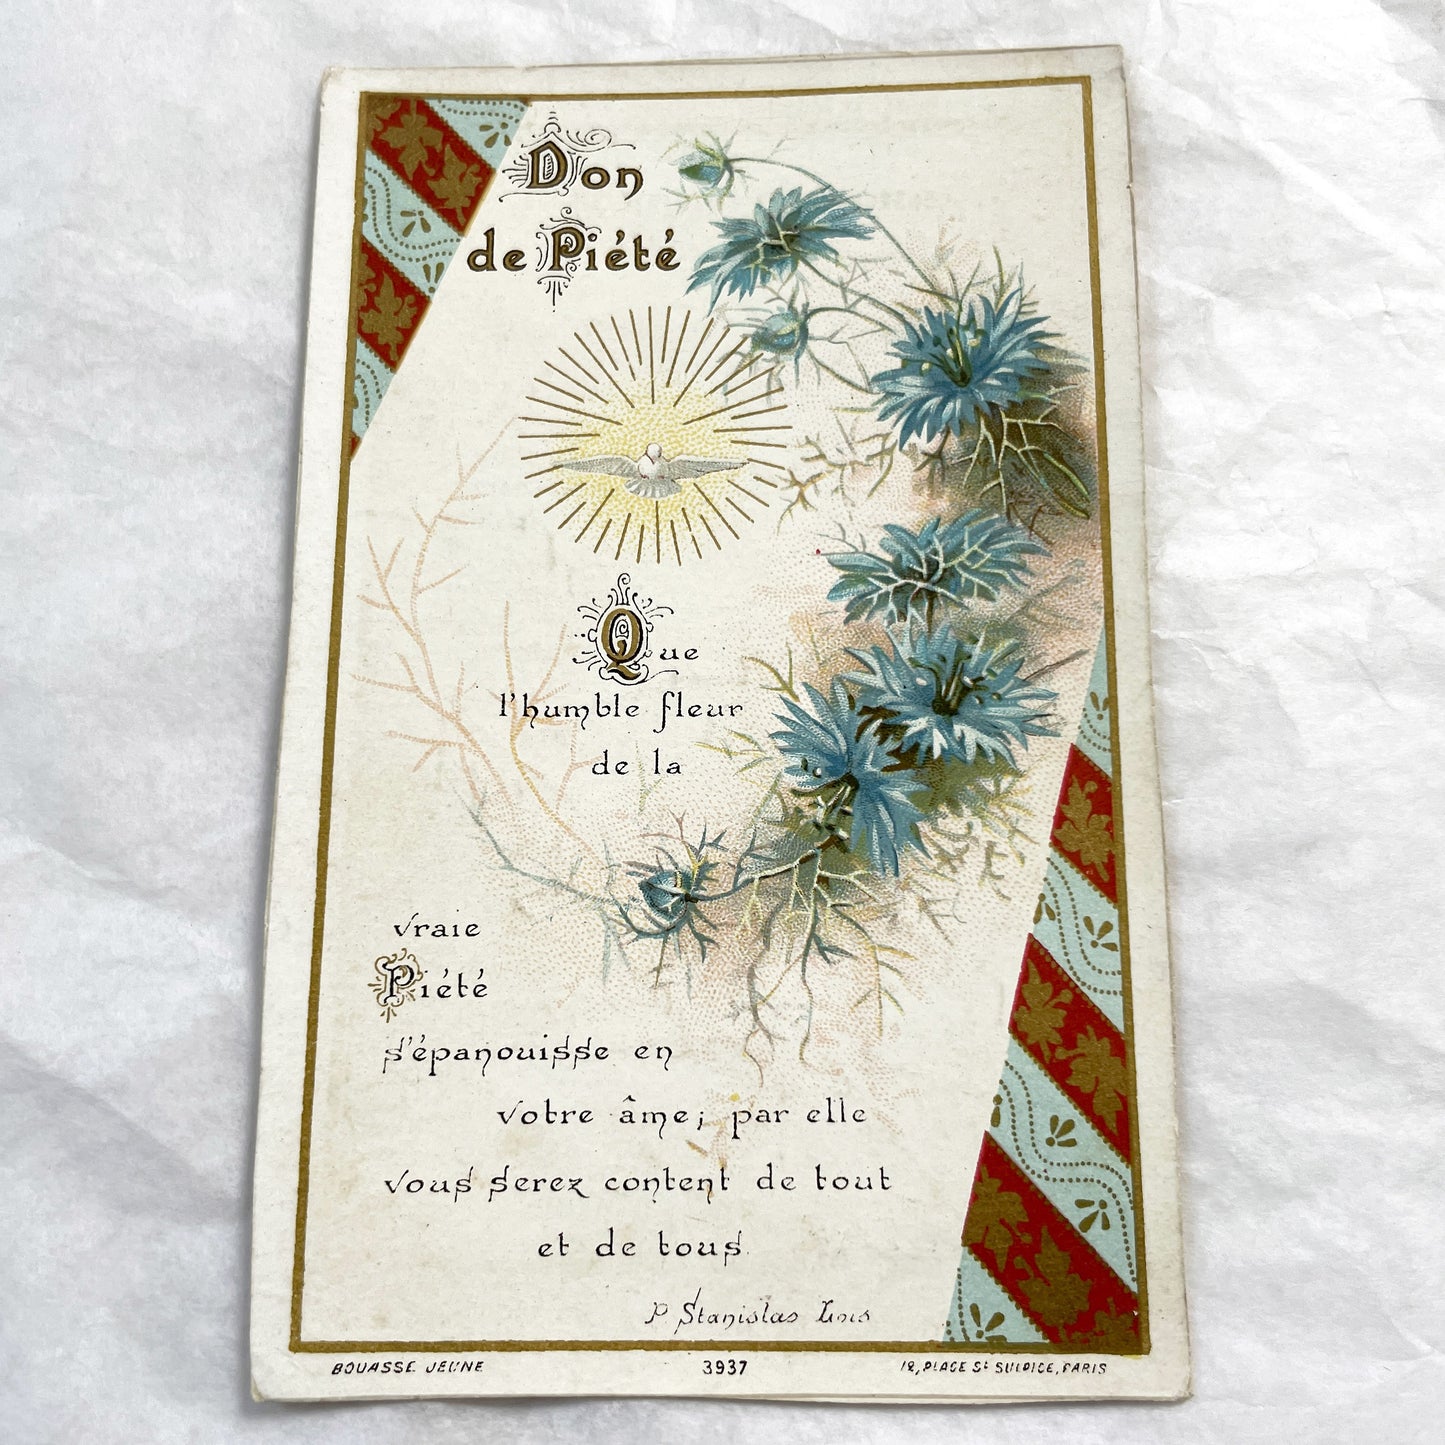 Don
de Piété
Que
l'humble fleur
de la
vraie
Piété
s'épanouisse en
votre âme; par elle
vous serez content de tout
et de tous.
P Stanislas Lois
BOUASSE JEUNE
3937
12, PLACE St SULPICE, PARIS